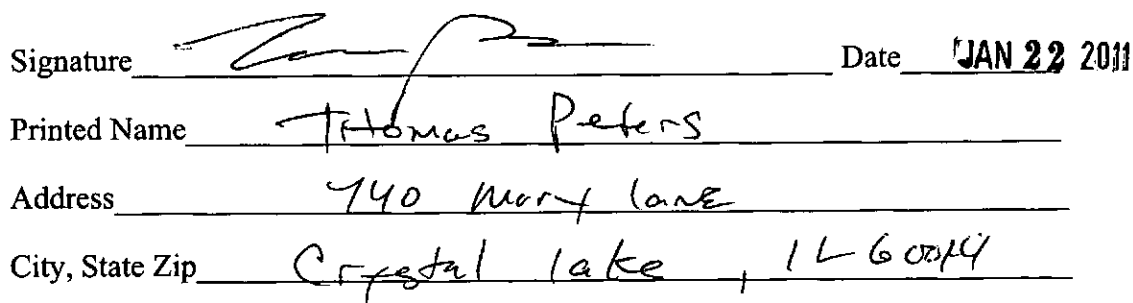 Signature Date JAN 22 2011
Printed Name Thomas Peters
Address 740 Mary lane
City, State Zip Crystal lake, IL 60014